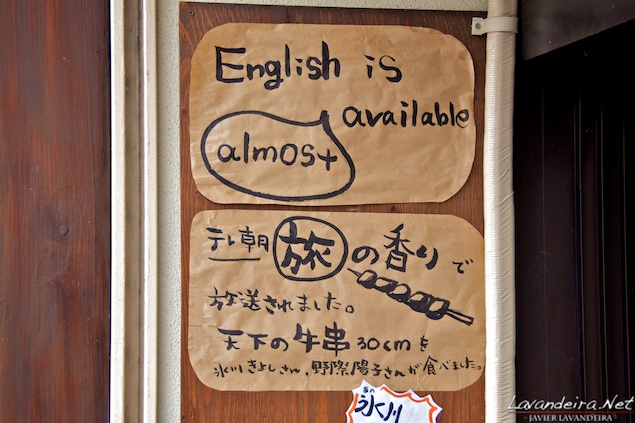 English is
available
almost
テレ朝 旅の香りで
放送されました。
天下の牛串30cmを
氷川きよしさん、野際陽子さんが食べました。
氷川
Lavandeira.Net
JAVIER LAVANDEIRA